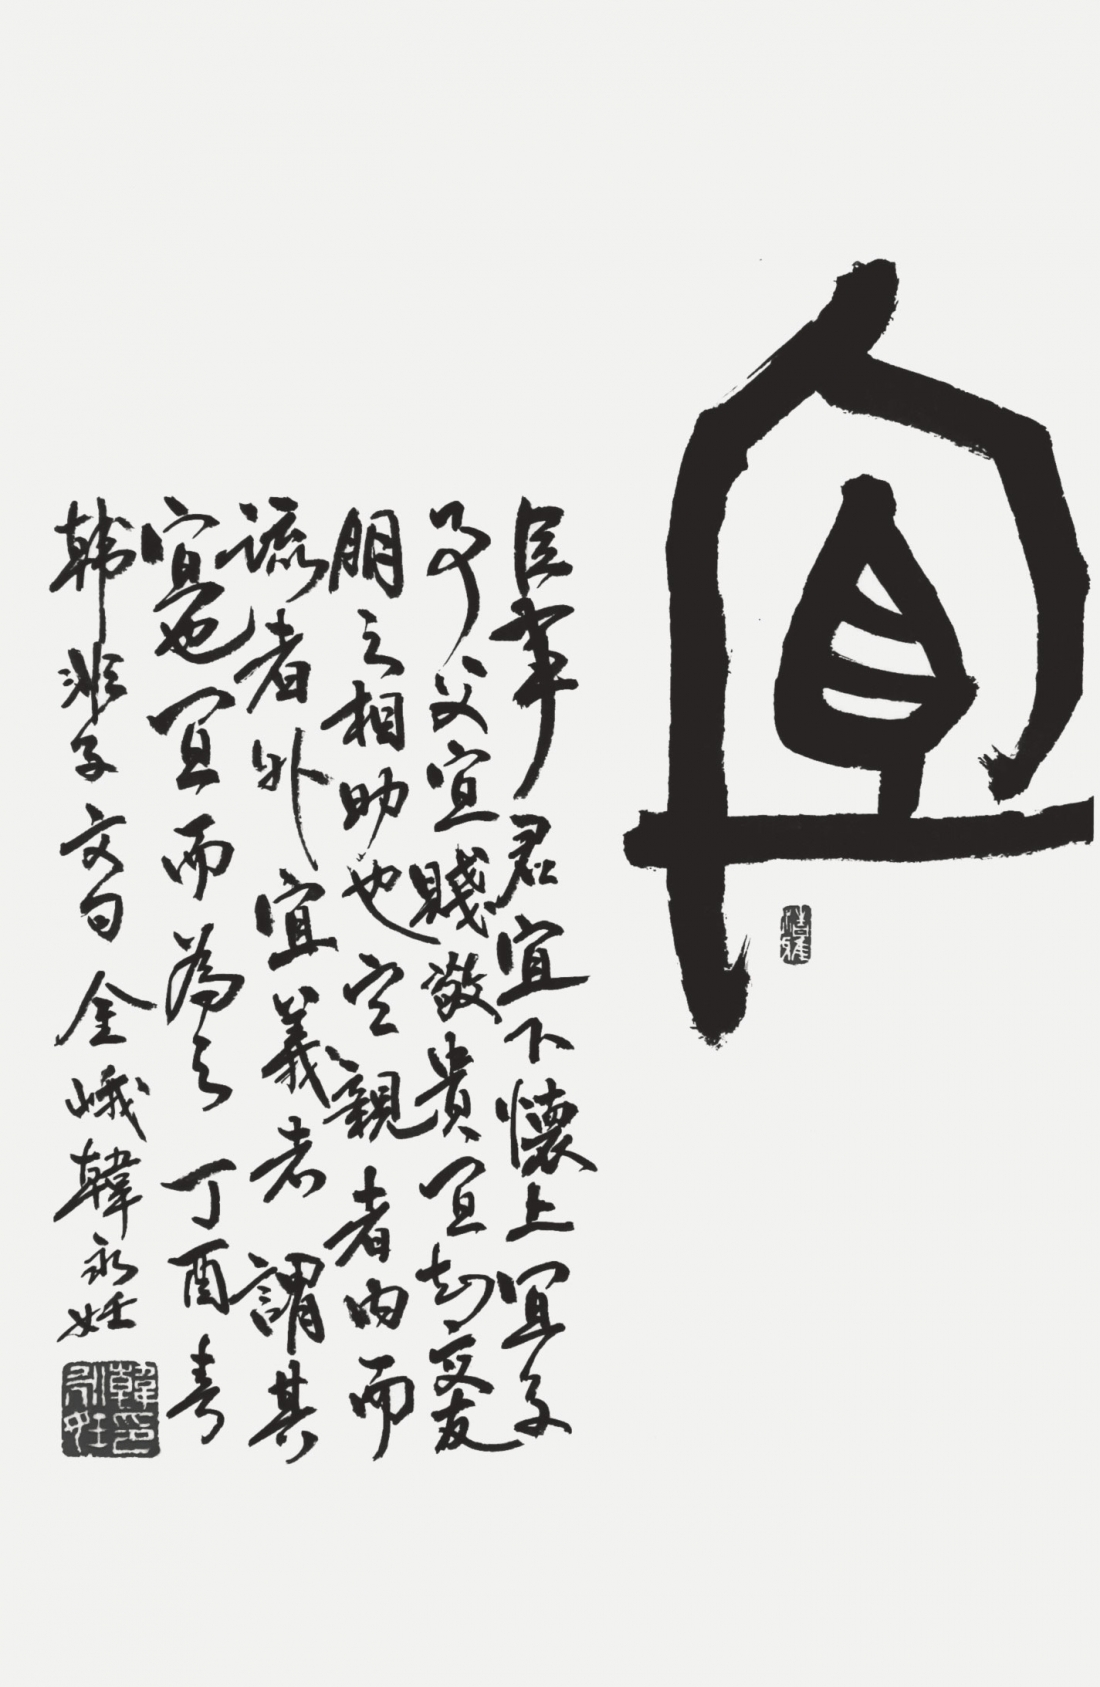 宜
臣事君宜下懷上宜子
事父宜賤敬貴宜知交友
朋之相助也宜親者內而
疏者外宜義者謂其
宜也宜而為之 丁酉春
韓非子文句 金峨韓永妊